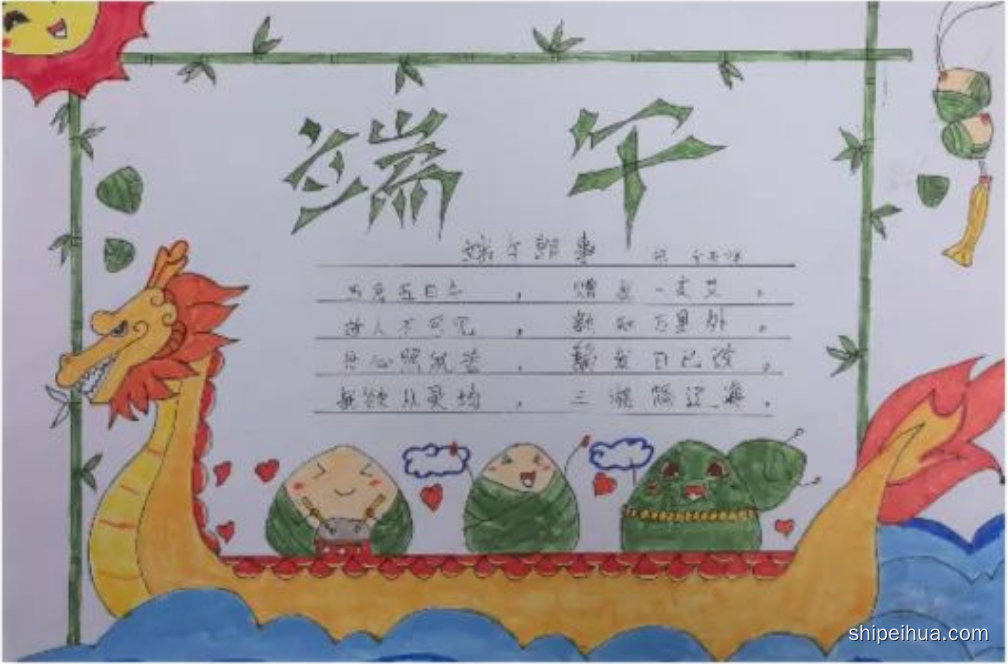 端 午
端午即事
五月五日午，赠我一枝艾。
故人不可见，新知万里外。
丹心照夙昔，鬓发日已改。
我欲从灵均，三湘隔辽海。
shipeihua.com